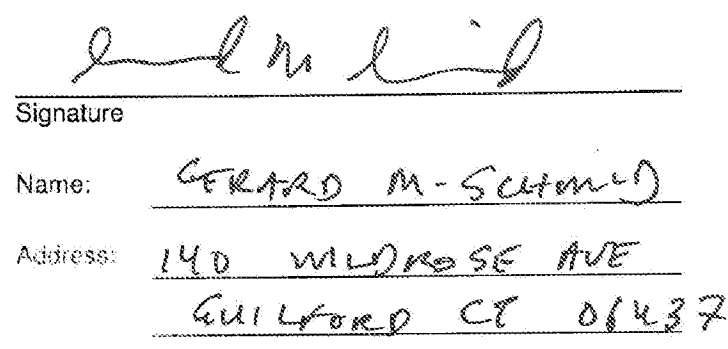 Signature
Name: GERARD M. SCHMID
Address: 140 WILDROSE AVE
GUILFORD CT 06437